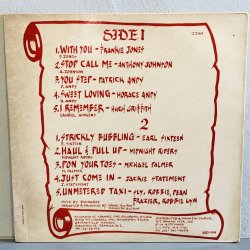 SIDE 1
1. WITH YOU - FRANKIE JONES
F. JONES
2. STOP CALL ME - ANTHONY JOHNSON
A. JOHNSON
3. YOU STEP - PATRICK ANDY
P. ANDY
4. SWEET LOVING - HORACE ANDY
H. ANDY
5. I REMEMBER - HUGH GRIFFITH
2
1. STRICKLY BUBBLING - EARL SIXTEEN
E. SIXTEEN
2. HAUL & PULL UP - MIDNIGHT RIDERS
MIDNIGHT RIDERS
3. PON YOUR TOES - MICHAEL PALMER
M. PALMER
4. JUST COME IN - JACKIE STATEMENT
J. STATEMENT
5. UNMETERED TAXI - SLY, ROBBIE, DEAN
FRAZIER, ROBBIE LYN